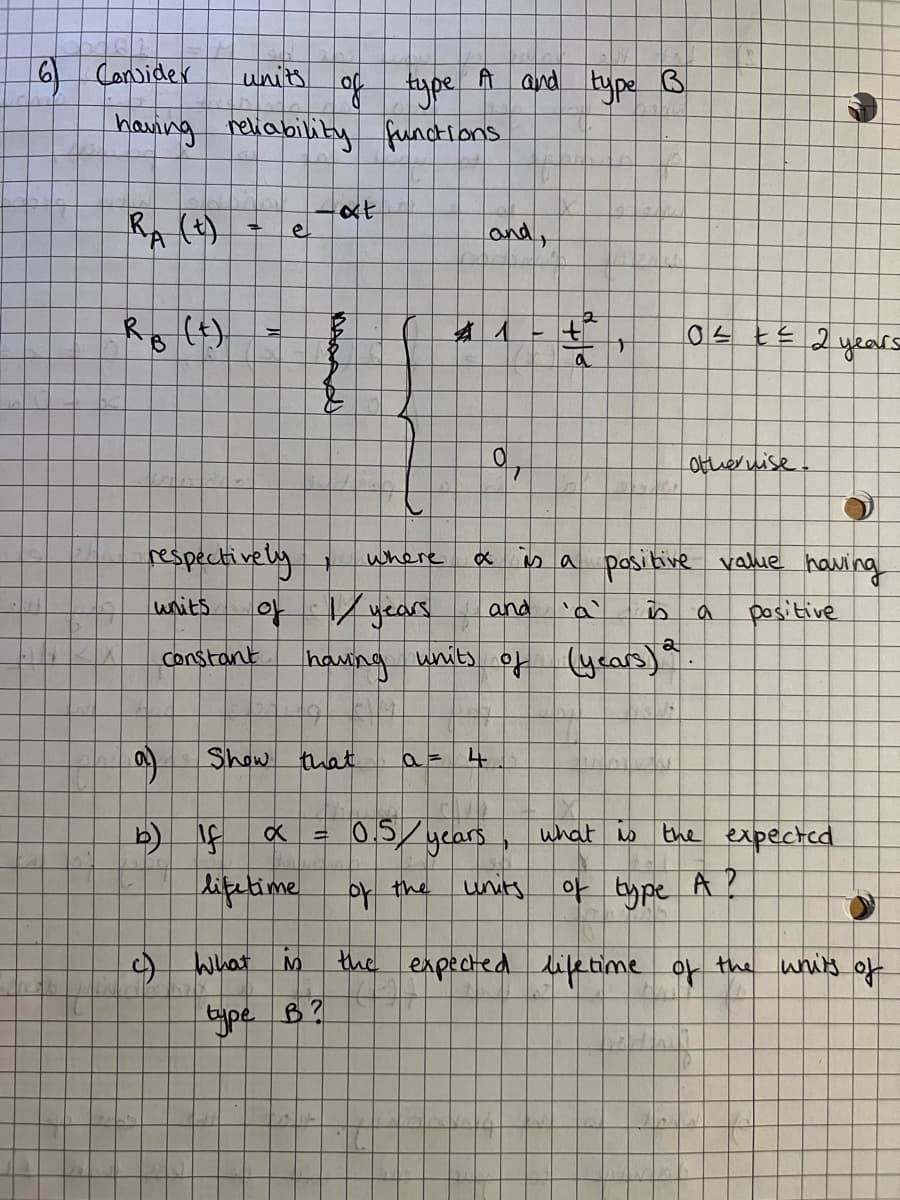 6) Consider units of type A and type B
having reliability functions
R_A (t) = e^{-αt} and,
R_B (t) = { 1 - t²/a , 0 ≤ t ≤ 2 years
0, otherwise.
respectively, where α is a positive value having
units of 1/years and 'a' is a positive
constant having units of (years)².
a) Show that a = 4.
b) If α = 0.5/years, what is the expected
lifetime of the units of type A?
c) What is the expected lifetime of the units of
type B?